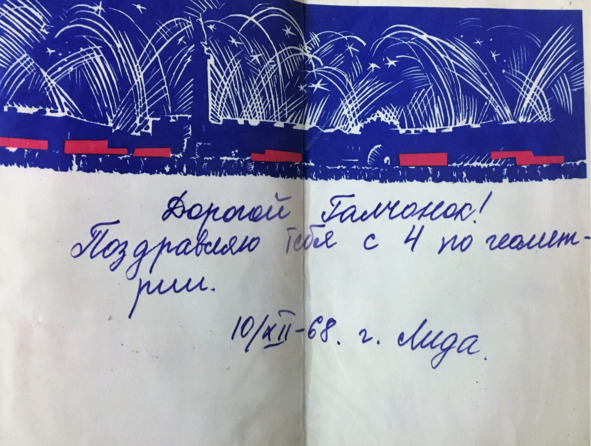 Дорогой Галчонок!
Поздравляю тебя с 4 по геомет-
рии.
10/XII-68. г. Лида.